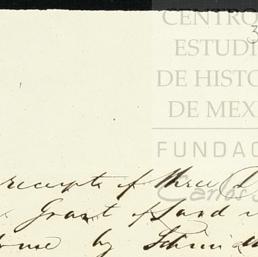 CENTRO
ESTUDI
DE HISTO
DE MEX
FUNDAC
Carlos
receipts of three
Grant of land
by